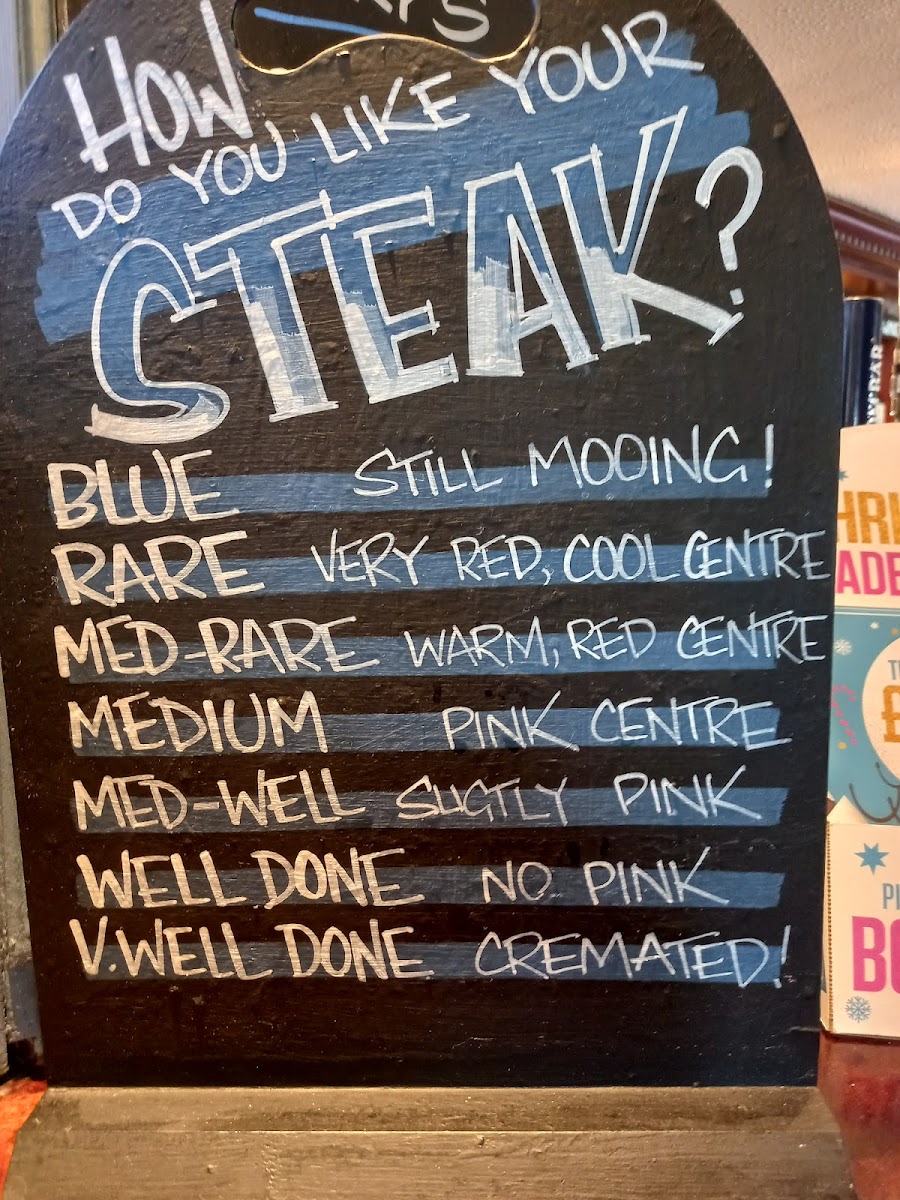 HOW
DO YOU LIKE YOUR
STEAK?
BLUE STILL MOOING!
RARE VERY RED, COOL CENTRE
MED-RARE WARM, RED CENTRE
MEDIUM PINK CENTRE
MED-WELL SLIGTLY PINK
WELL DONE NO PINK
V.WELL DONE CREMATED!